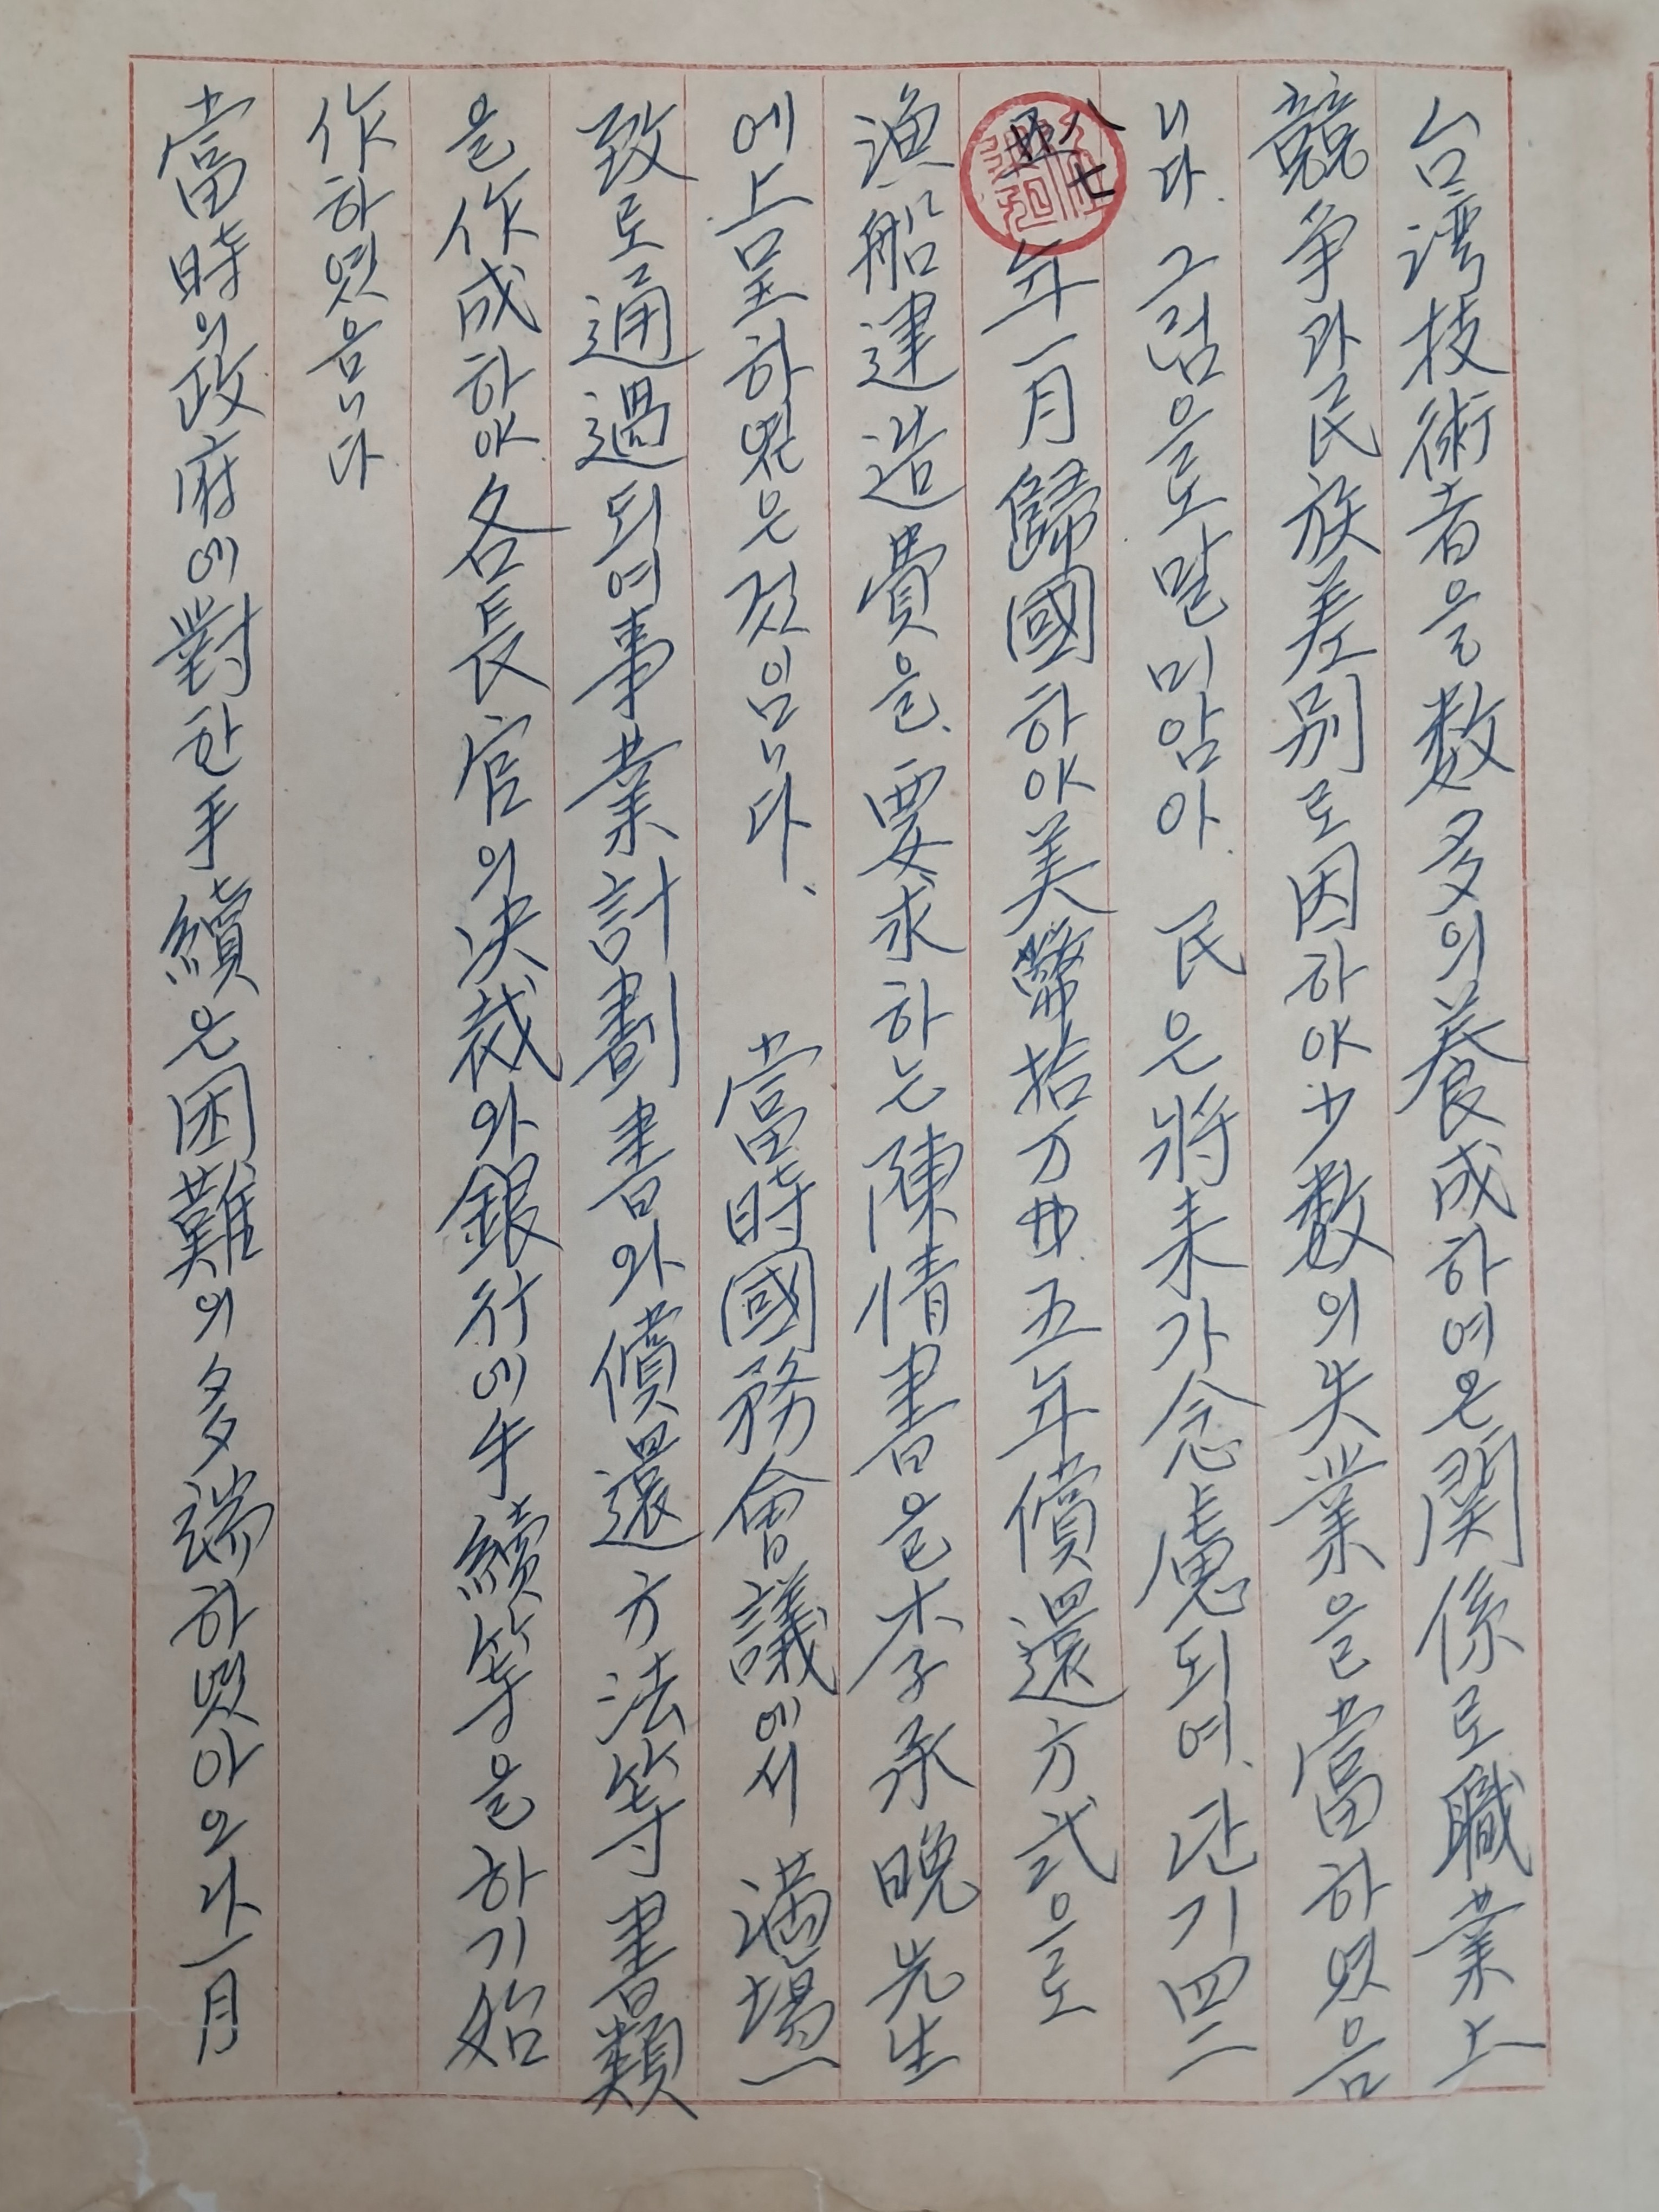 台湾技術者을数多의養成하여온関係로職業上
競争과民族差別로因하야少数의失業을當하엿음
니다. 그럼으로말미암아. 民은將来가念慮되여. 단기四二
八七年一月歸國하야美幣拾万弗五年償還方式으로
漁船建造費을.要求하는陳情書을李承晩先生
에上呈하엿든것임니다. 當時國務會議에서 満場一
致로通過되여事業計劃書와償還方法等書類
을作成하야各長官의决裁와銀行에手續等을하기始
作하엿음니다
當時의政府에對한手續은困難의多端하엿아오나一月